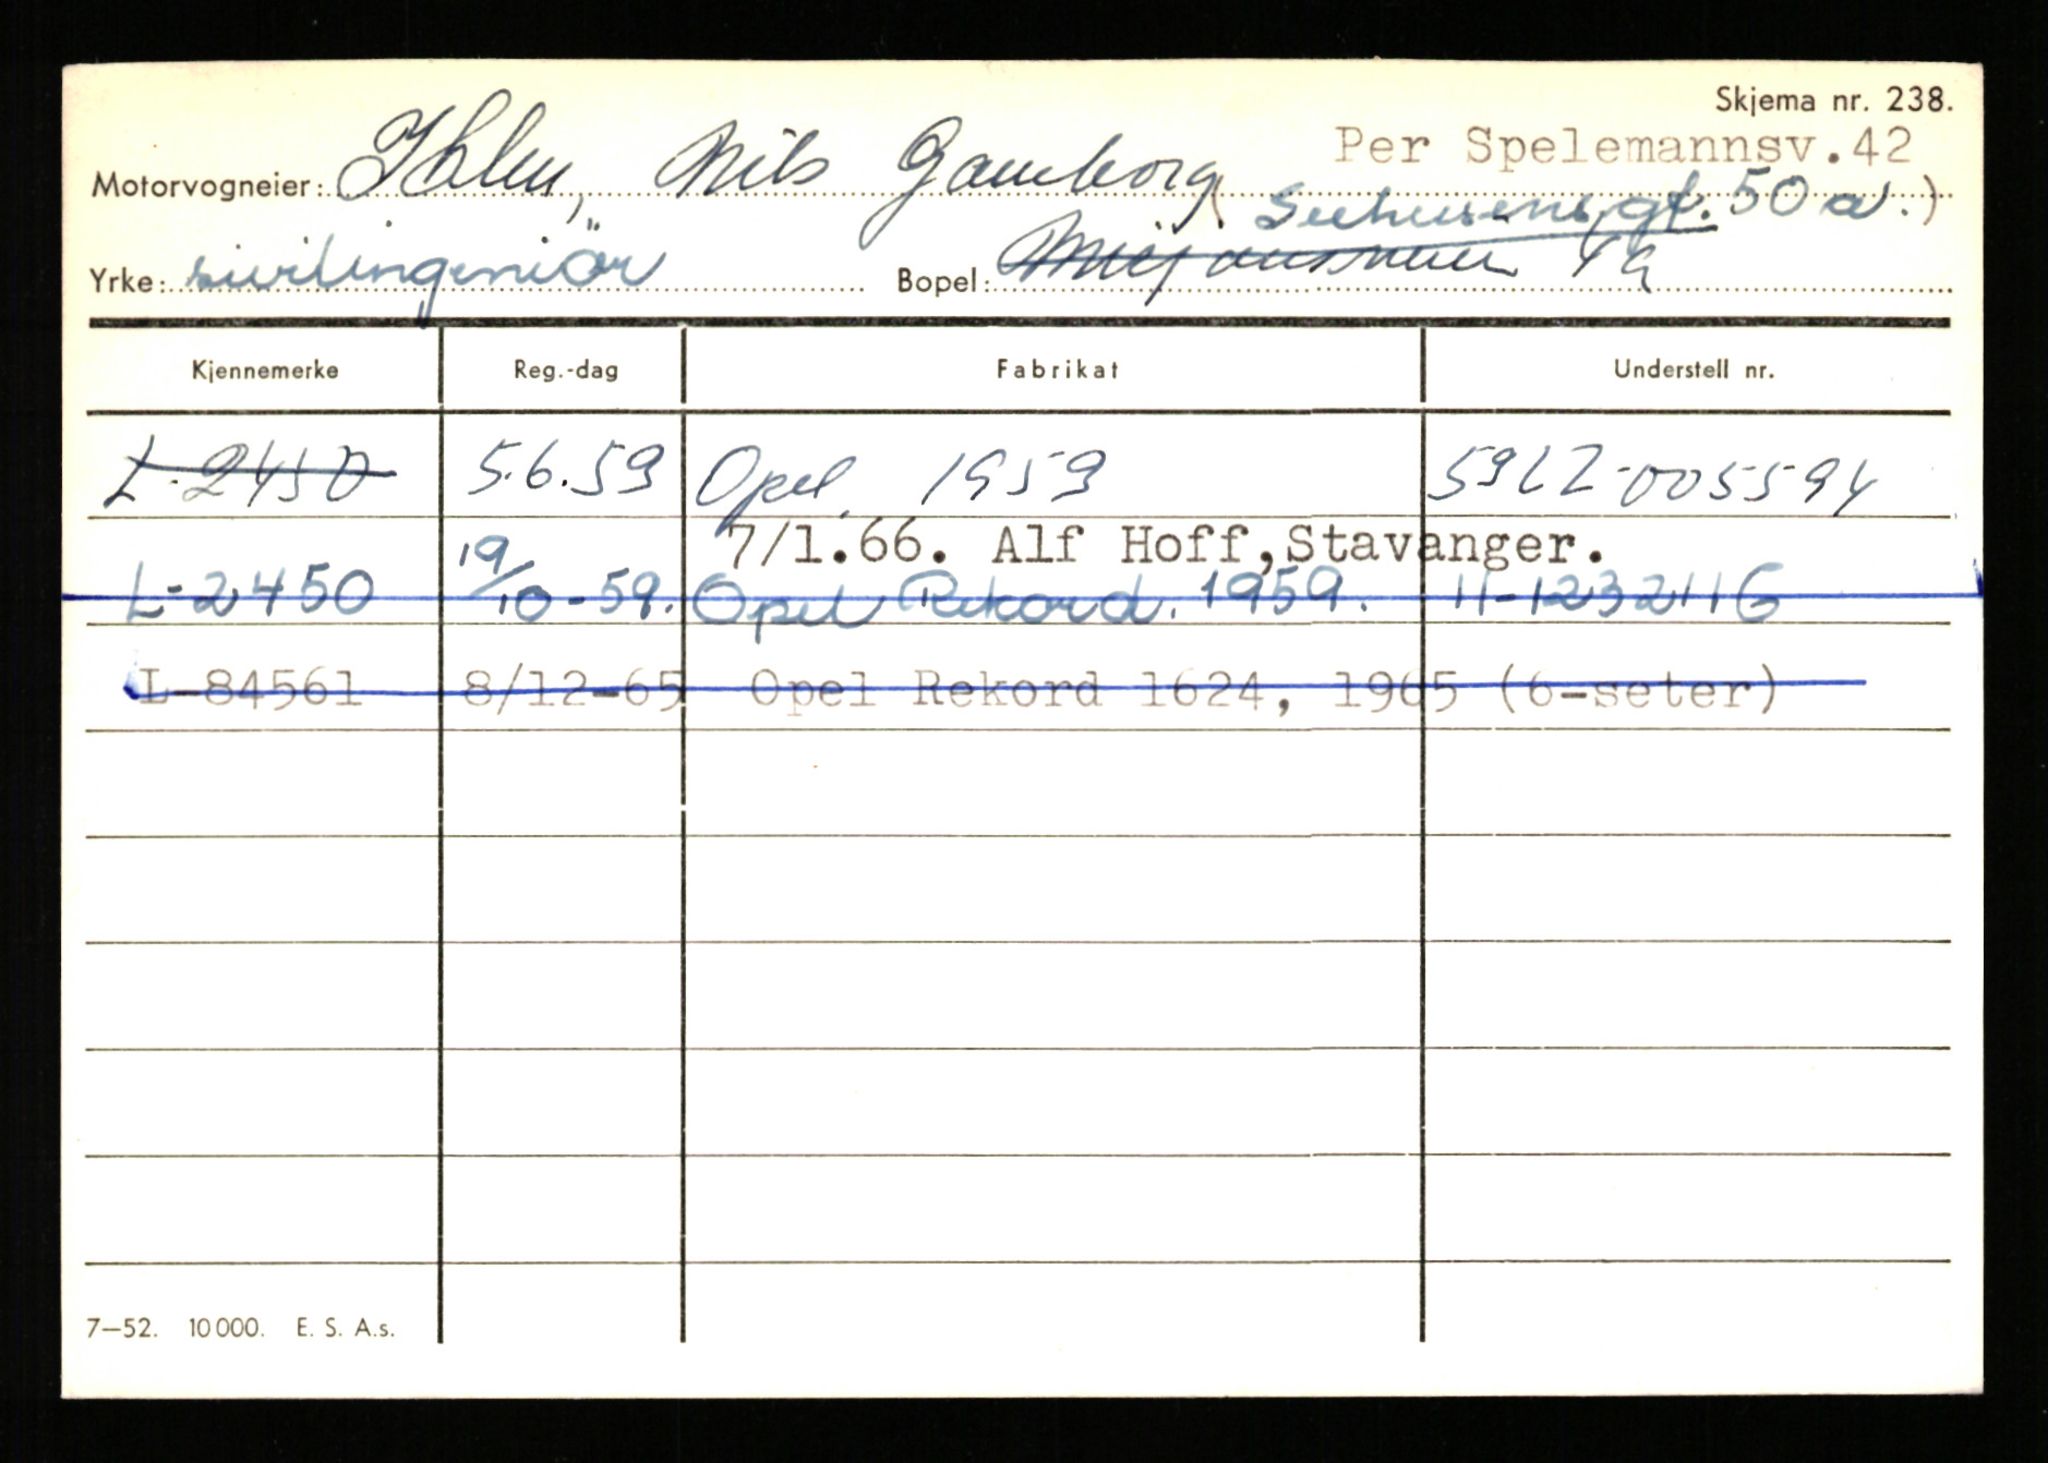 Skjema nr. 238.
Per Spelemannsv.42
Motorvogneier: Ihlen, Nils Gamborg
(Seehusensgt. 50 a.)
Yrke: sivilingeniör Bopel: 4 a
Kjennemerke Reg.-dag Fabrikat Understell nr.
L-2450 5.6.59 Opel 1959 59LZ-005594
7/1.66. Alf Hoff,Stavanger.
L-2450 19/10-59. Opel Rekord. 1959. 11-1232116
L-84561 8/12-65 Opel Rekord 1624, 1965 (6-seter)
7—52. 10 000. E. S. A.s.